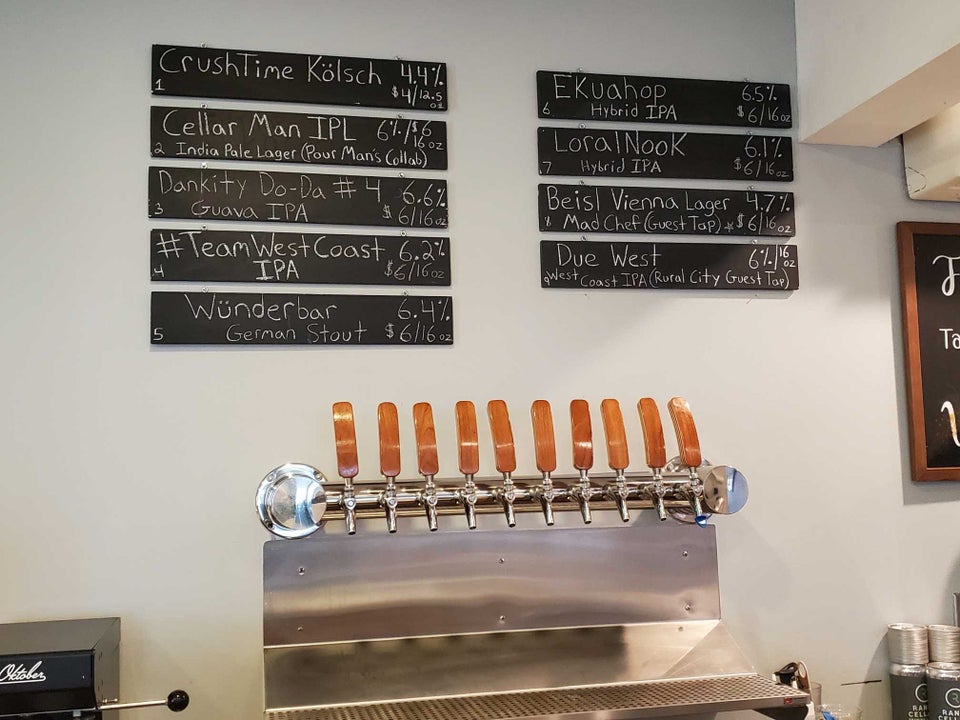 CrushTime Kölsch 4.4%
1 $4/12.5 oz
Cellar Man IPL 6%/$6
16oz
2 India Pale Lager (Pour Man's Collab)
Dankity Do-Da #4 6.6%
3 Guava IPA $6/16oz
#TeamWestCoast 6.2%
4 IPA $6/16oz
Wünderbar 6.4%
5 German Stout $6/16oz
Ekuahop 6.5%
6 Hybrid IPA $6/16oz
LoralNook 6.1%
7 Hybrid IPA $6/16oz
Beisl Vienna Lager 4.7%
8 Mad Chef (Guest Tap) $6/16oz
Due West 6%/16oz
9 West Coast IPA (Rural City Guest Tap)
F
Ta
Oktober
R
RAN
CELL
R
RAN
CELL